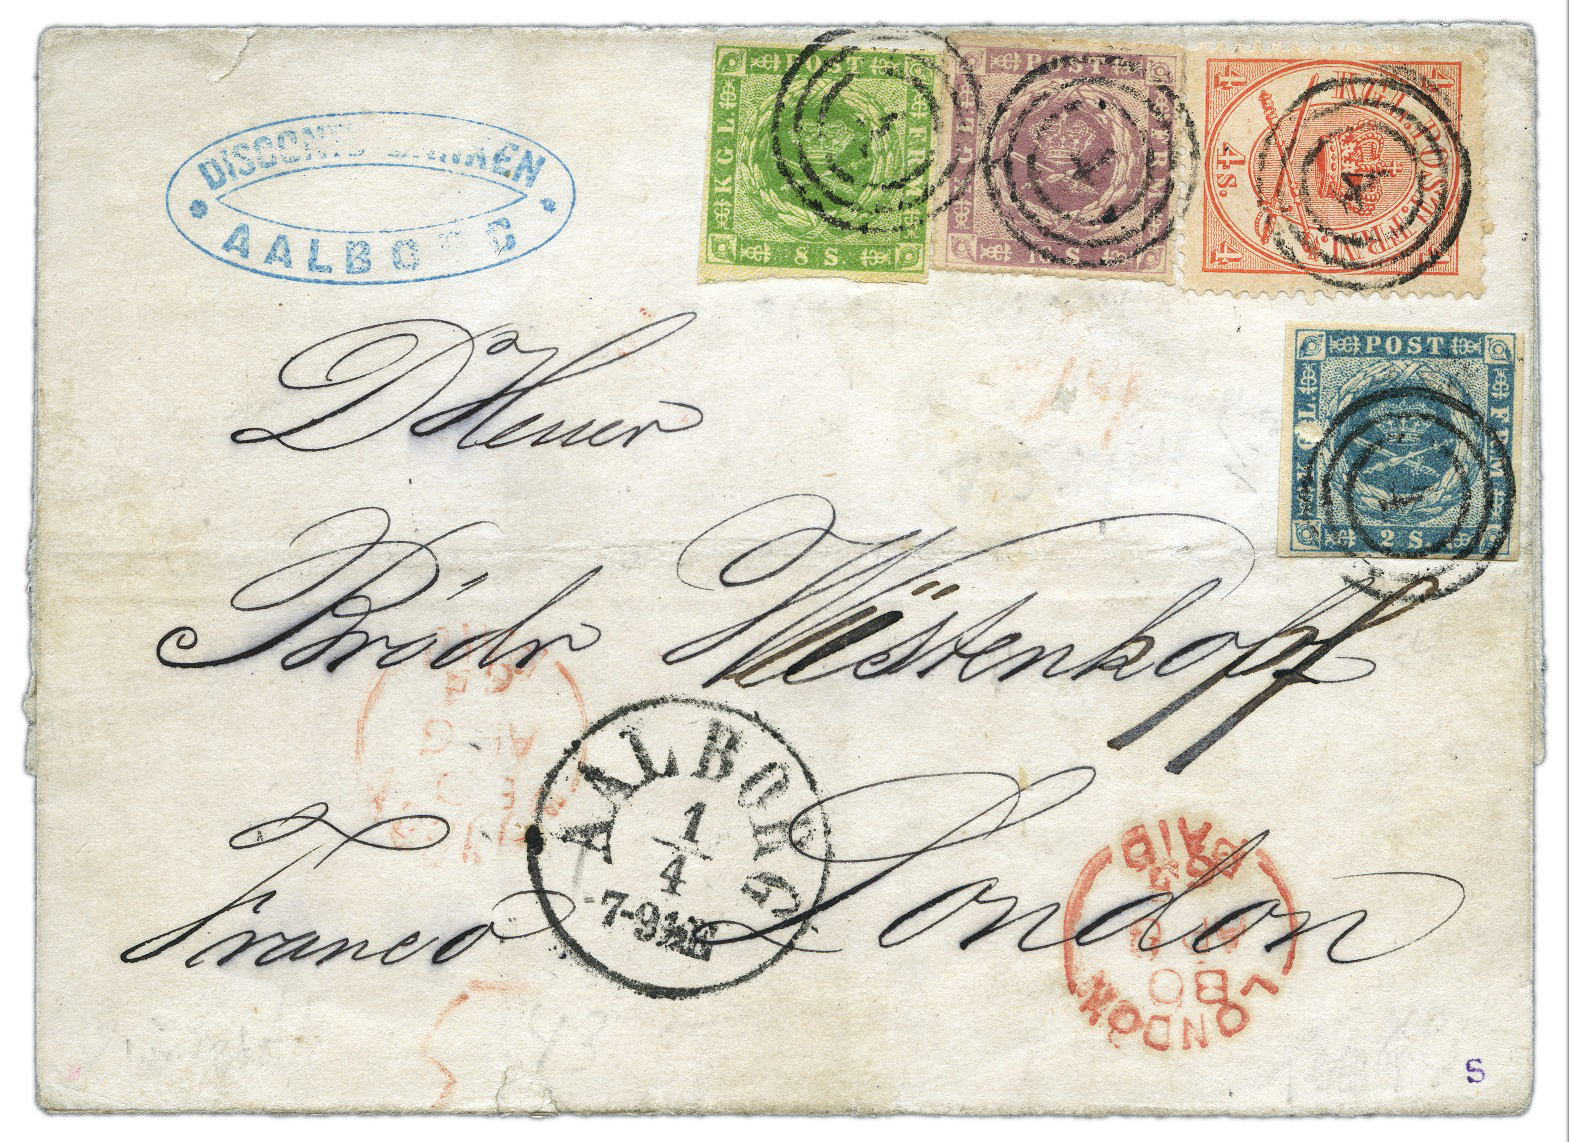 DISCONTO BANKEN
AALBORG
POST
KGL
FRM
8 S.
POST
KGL
FRM
16 S.
KGL. POST FRM.
4 4 4 4
4 S.
POST
KGL
FRM
2 S.
D'Herrer
Brödr Wüstenhopff
Franco London
AALBORG
1/4
7-9 E
LONDON
PAID
S